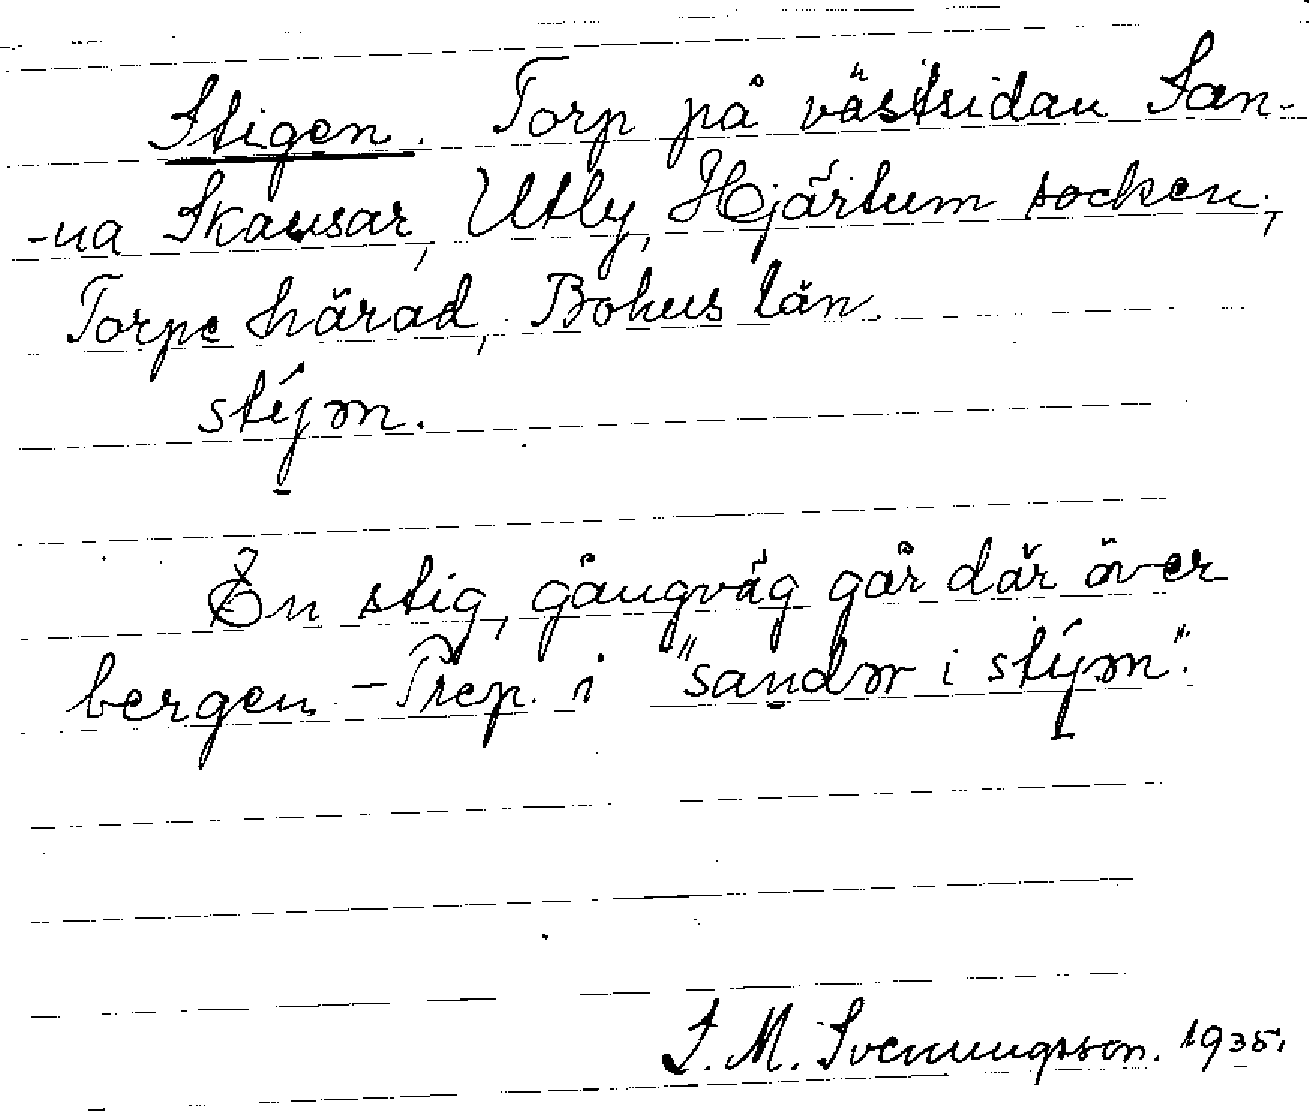 Stigen. Torp på västsidan San-
-na Skausar, Utby, Hjärtum socken,
Torpe härad, Bohus län.
stýjm.
En stig, gångväg går där över
bergen - Prep. i "sandm i stýjm".
S. M. Svenungsson. 1935.